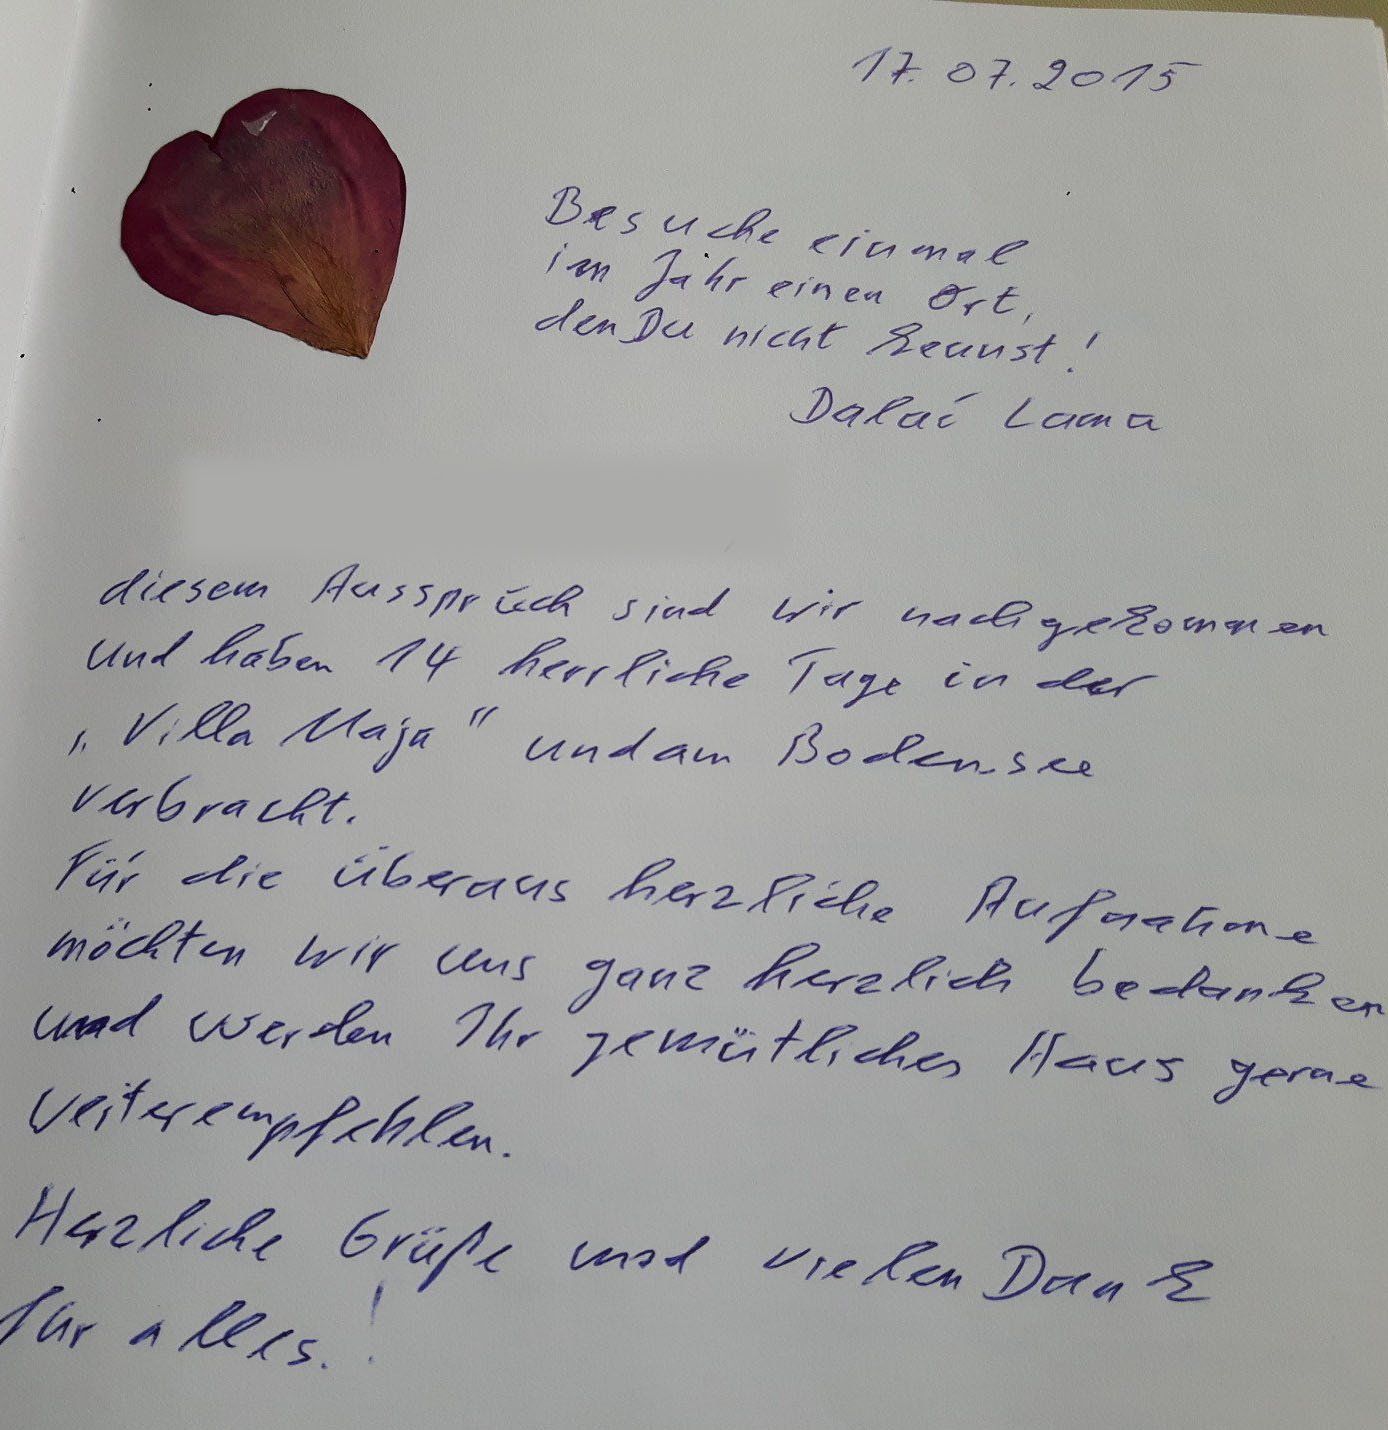 17.07.2015
Besuche einmal
im Jahr einen Ort,
den Du nicht kennst!
Dalai Lama
diesem Ausspruch sind wir nachgekommen
und haben 14 herrliche Tage in der
„Villa Maja" und am Bodensee
verbracht.
Für die überaus herzliche Aufnahme
möchten wir uns ganz herzlich bedanken
und werden Ihr gemütliches Haus gerne
weiterempfehlen.
Herzliche Grüße und vielen Dank
für alles.!